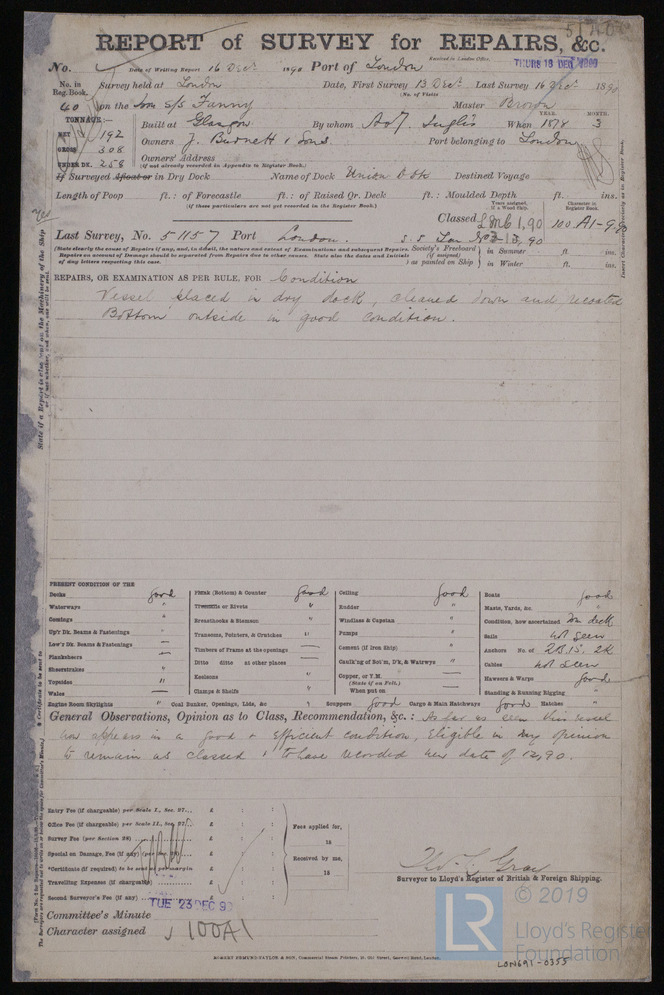 REPORT of SURVEY for REPAIRS, &c.
No. Date of Writing Report 16 Decr 1890 Port of London Received in London Office THURS 18 DEC 1890
No. in Reg. Book. Survey held at London Date, First Survey 13 Decr. Last Survey 16 Decr 1890
(No. of Visits
40 on the Iron S/S Fanny Master Brown
TONNAGE:— Built at Glasgow By whom A & J. Inglis When 1874 YEAR. MONTH. 3
NET 192
GROSS 308 Owners J. Burnett & Sons Port belonging to London
UNDER DK. 258 Owners' Address
(if not already recorded in Appendix to Register Book.)
If Surveyed Afloat or in Dry Dock Name of Dock Union Destined Voyage
Length of Poop ft. : of Forecastle ft. : of Raised Qr. Deck ft. : Moulded Depth ft. ins.
(if these particulars are not yet recorded in the Register Book.)
Years assigned, if a Wood Ship. Character in Register Book.
Classed LMC 1,90 100 A1
Last Survey, No. 51157 Port London.
(State clearly the cause of Repairs if any, and, in detail, the nature and extent of Examinations and subsequent Repairs.
Repairs on account of Damage should be separated from Repairs due to other causes. State also the dates and Initials
of any letters respecting this case.
Society's Freeboard (if assigned) as painted on Ship in Summer ft. ins.
in Winter ft. ins.
REPAIRS, OR EXAMINATION AS PER RULE, FOR Condition
Vessel placed in dry dock, cleaned down and recoated
Bottom outside in good condition.
PRESENT CONDITION OF THE
Decks good
Waterways "
Comings "
Up'r Dk. Beams & Fastenings "
Low'r Dk. Beams & Fastenings —
Planksheers —
Sheerstrakes "
Topsides "
Wales —
Engine Room Skylights "
Plank (Bottom) & Counter good
Treenails or Rivets "
Breasthooks & Stemson "
Transoms, Pointers, & Crutches "
Timbers of Frame at the openings —
Ditto ditto at other places —
Keelsons "
Clamps & Shelfs —
Coal Bunker, Openings, Lids, &c "
Ceiling good
Rudder "
Windlass & Capstan "
Pumps "
Cement (if Iron Ship) "
Caulk'ng of Bot'm, D'k, & Watrwys "
Copper, or Y.M. —
(State if on Felt.)
When put on
Scuppers good Cargo & Main Hatchways good Hatches "
Boats good
Masts, Yards, &c. "
Condition, how ascertained On deck
Sails not seen
Anchors No. of 2B.1S. 2K
Cables not seen
Hawsers & Warps good
Standing & Running Rigging "
General Observations, Opinion as to Class, Recommendation, &c. : As far as seen this vessel
now appears in a good & Efficient condition, Eligible in my opinion
to remain as classed & to have recorded new date of 12,90.
Entry Fee (if chargeable) per Scale I., Sec. 27... £ : :
Office Fee (if chargeable) per Scale II., Sec. 27. £ : :
Survey Fee (per Section 28) £ : :
Special or Damage Fee (if any) (per Sec. 28) £ : :
*Certificate (if required) to be sent as per margin
Travelling Expenses (if chargeable) £ : :
Second Surveyor's Fee (if any) £ : :
Fees applied for,
18
Received by me,
18
Surveyor to Lloyd's Register of British & Foreign Shipping.
Committee's Minute TUE 23 DEC 90
Character assigned 100A1
ROBERT EDMUND TAYLOR & SON, Commercial Steam Printers, 19, Old Street, Goswell Road, London.
LR
© 2019
Lloyd's Register
Foundation
LON691-0355